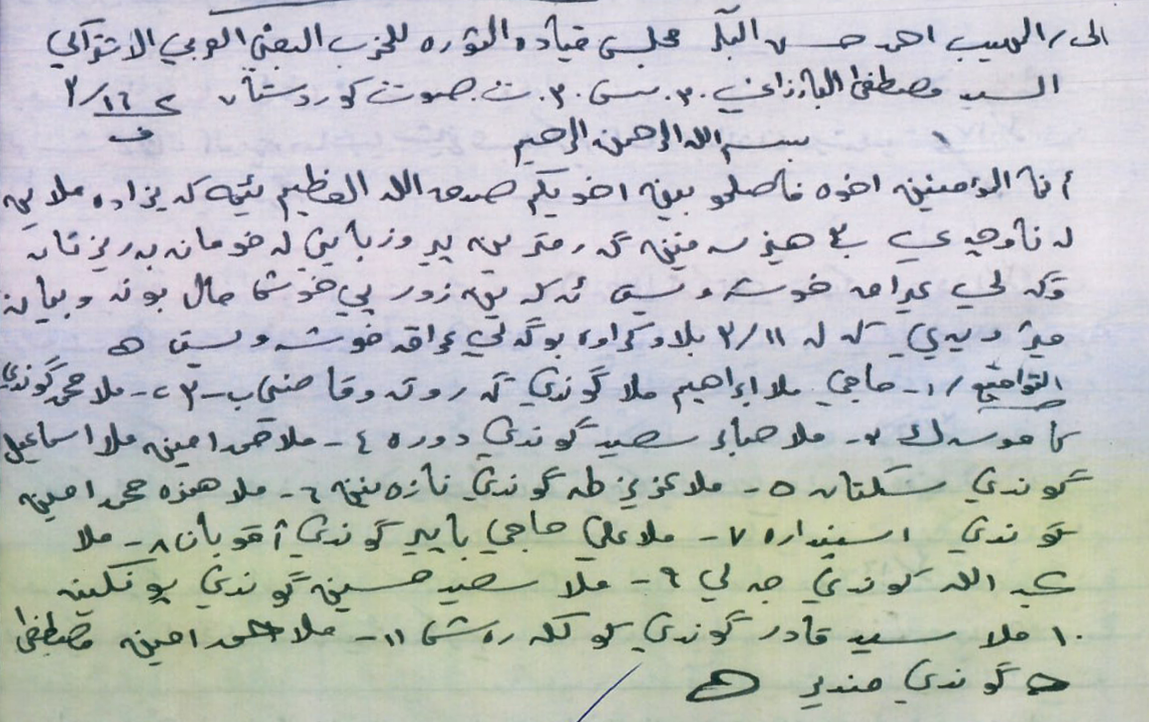 الى / المهيب احمد حسن البكر مجلس قياده الثوره للحزب البعث العربي الاشتراكي
السيد مصطفى البارزاني . م . س . م . ت . صوت كوردستان ١٦/٣
بسم الله الرحمن الرحيم
أنما المؤمنين اخوه فاصلحو بين اخويكم صدق الله العظيم ئيمه كه يژاده ملايي
له ناوچه ي هيزى گه رمترين پيروزبايي له خومان به ريزتان
وگه لي عيراق خوشه ويست ئه كه ين زور پي خوشحال بون و بيان
ميژويي كه له ٣/١١ بلاوكراوه بو گه لي عراق خوشه ويست ه
التواقيع / ١- حاجي ملا ابراهيم ملا گوندي گه روته وقاضي ب - م ٢- ملا محمد گوندي
كاموسه ك ٣- ملا صابر سعيد گوندي دوره ٤- ملا محمد امين ملا اسماعيل
گوندي سكتان ٥- ملا عزيز طه گوندي نازه نين ٦- ملا حمزه محمد امين
گوندي اسپينداره ٧- ملا علي حاجي باپير گوندي ئاقوبان ٨- ملا
عبد الله گوندي جه لي ٩- ملا سعيد حسين گوندي پونگينه
١٠ ملا سيد قادر گوندي كولكه ره ش ١١- ملا محمد امين مصطفى
گوندي مندير ه